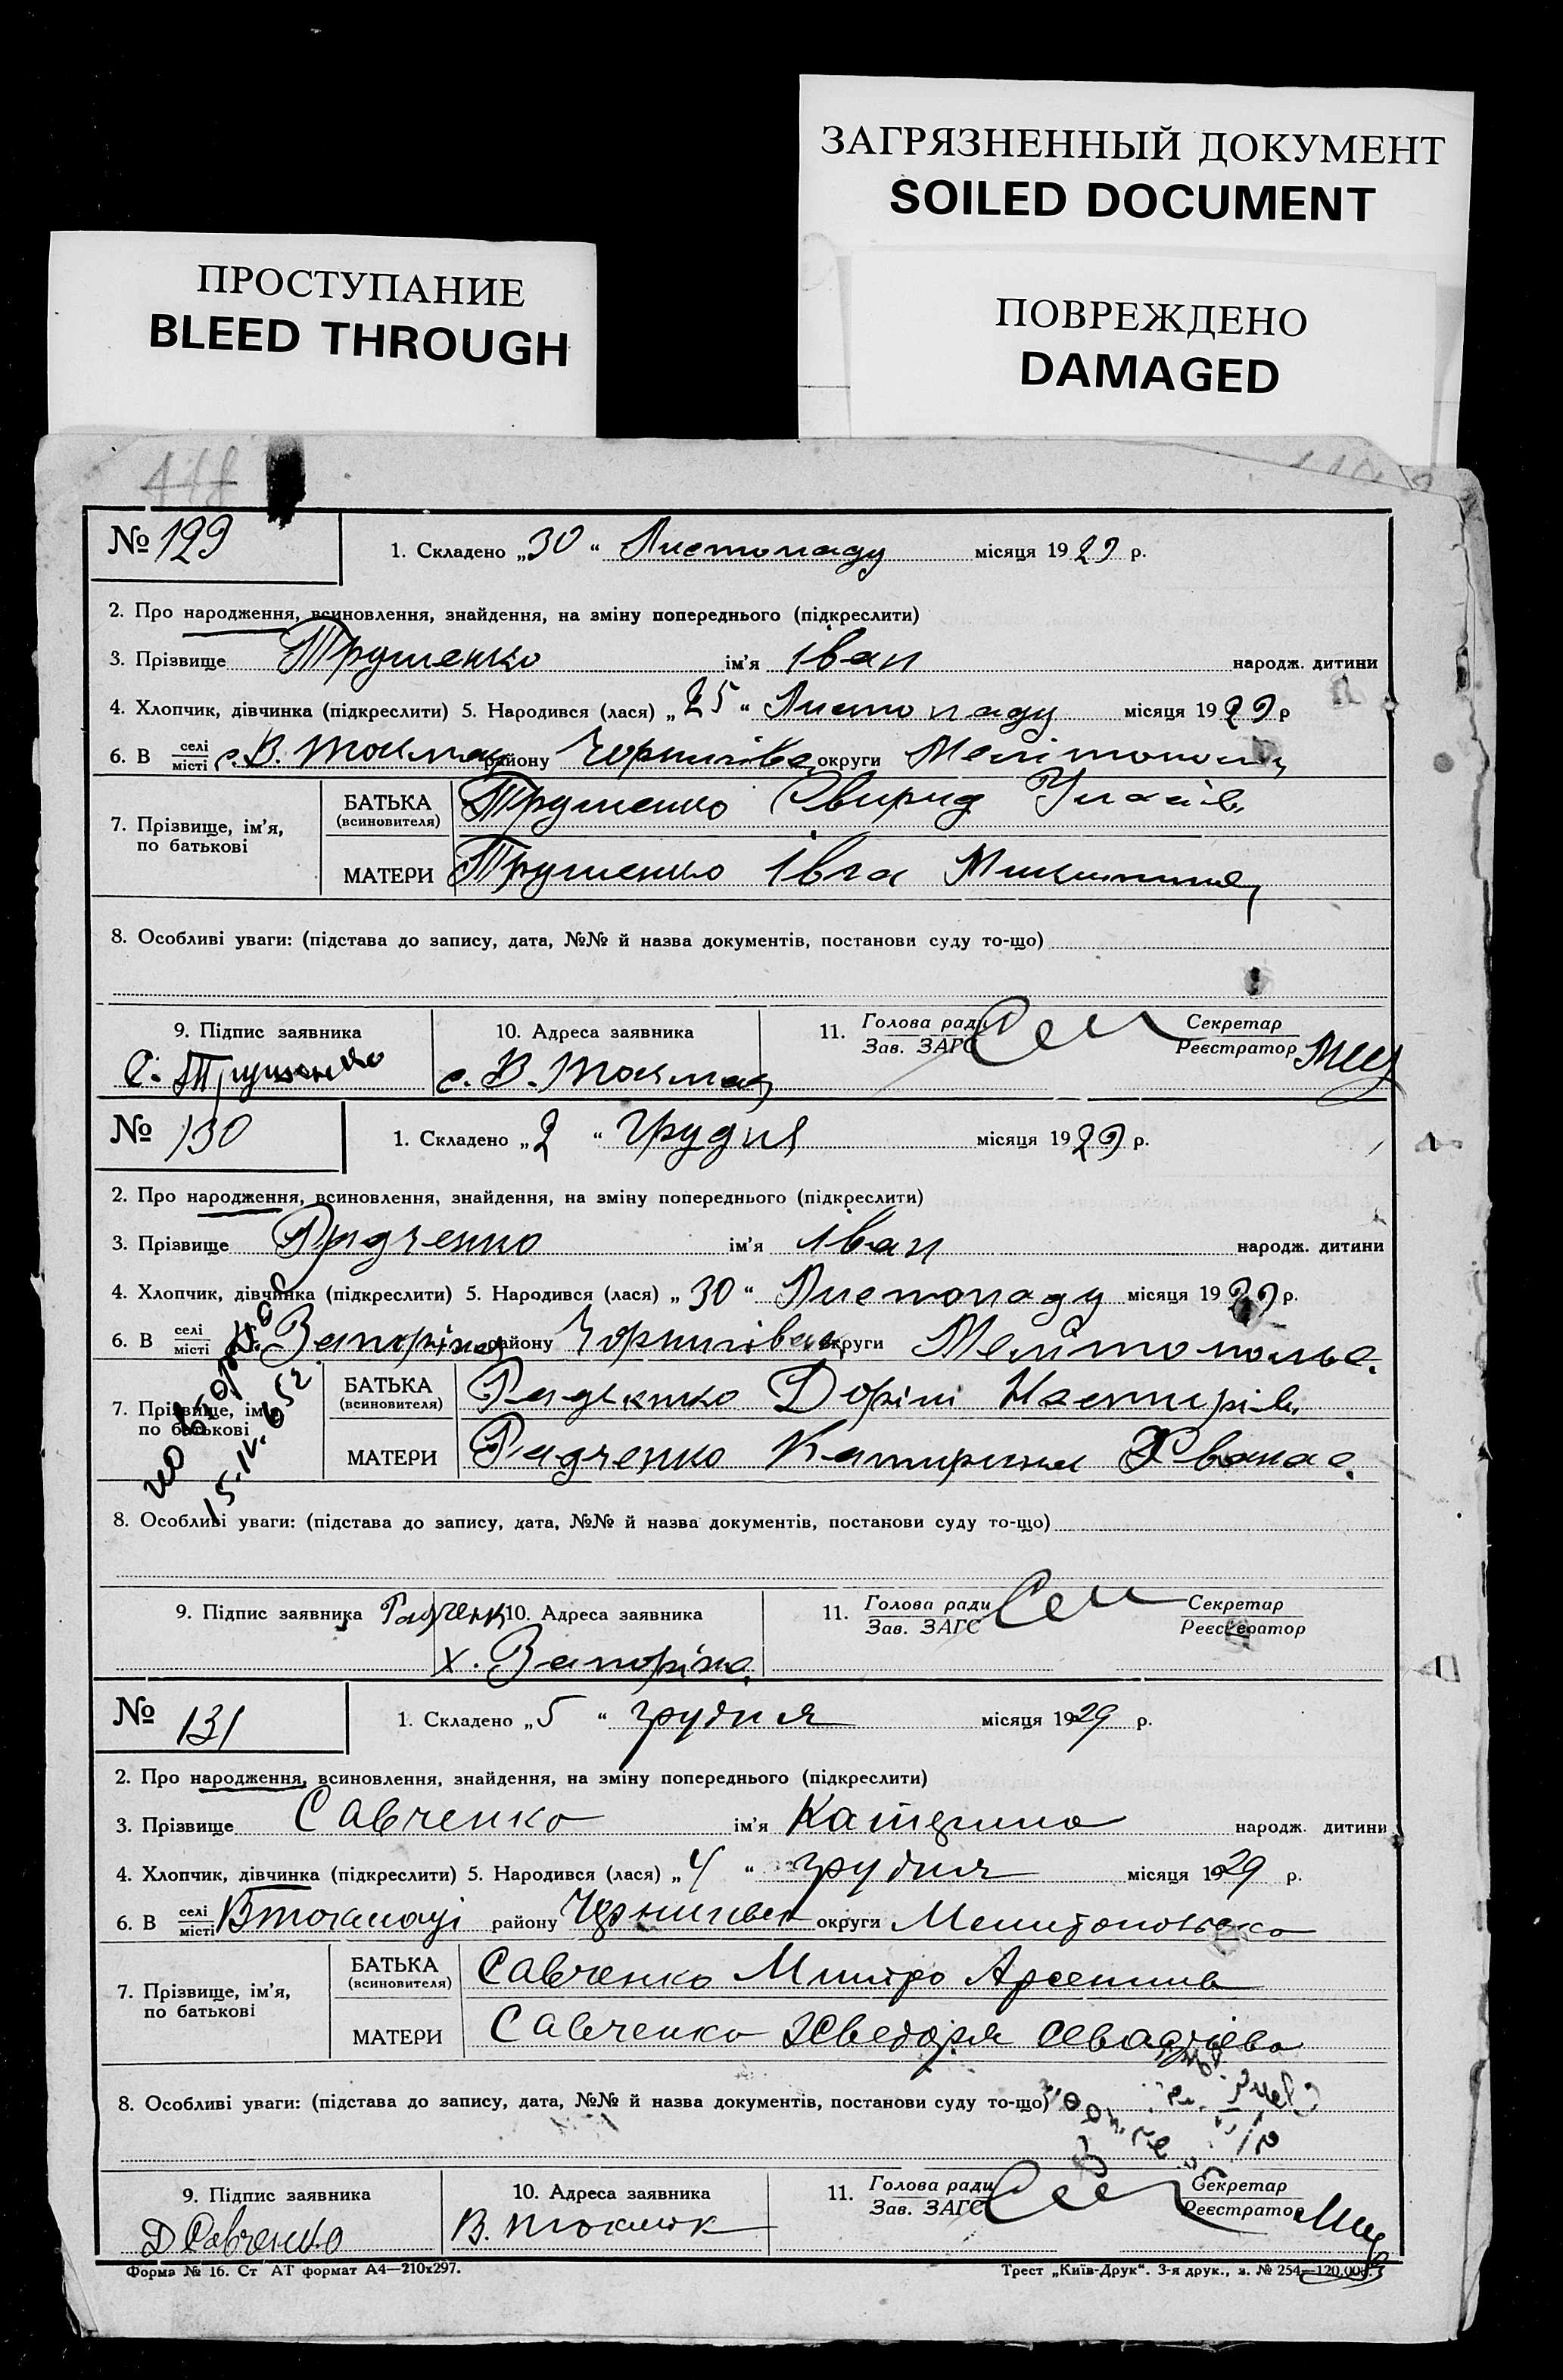 ЗАГРЯЗНЕННЫЙ ДОКУМЕНТ
SOILED DOCUMENT
ПРОСТУПАНИЕ
BLEED THROUGH
ПОВРЕЖДЕНО
DAMAGED
118
№ 129
1. Складено „30“ Листопаду місяця 1929 р.
2. Про народження, всиновлення, знайдення, на зміну попереднього (підкреслити)
3. Прізвище Трушенко ім'я Іван народж. дитини
4. Хлопчик, дівчинка (підкреслити) 5. Народився (лася) „25“ Листопаду місяця 1929 р
6. В селі місті с. В. Токмак району Чернігівс округи Мелітополь
7. Прізвище, ім'я, по батькові
БАТЬКА (всиновителя) Трушенко Свирид
МАТЕРИ Трушенко Івга Микитина
8. Особливі уваги: (підстава до запису, дата, №№ й назва документів, постанови суду то-що)
9. Підпис заявника 10. Адреса заявника 11. Голова ради Зав. ЗАГС Секретар Реєстратор
С. Трушенко с. В. Токмак
№ 130
1. Складено „2“ Грудня місяця 1929 р.
2. Про народження, всиновлення, знайдення, на зміну попереднього (підкреслити)
3. Прізвище Радченко ім'я Іван народж. дитини
4. Хлопчик, дівчинка (підкреслити) 5. Народився (лася) „30“ Листопаду місяця 1929 р.
6. В селі місті х. Запоріже району Чернігівськ округи Мелітопольс.
7. Прізвище, ім'я, по батькові
БАТЬКА (всиновителя) Радченко
МАТЕРИ Радченко Катирина Хванас.
8. Особливі уваги: (підстава до запису, дата, №№ й назва документів, постанови суду то-що)
9. Підпис заявника Радченк 10. Адреса заявника 11. Голова ради Зав. ЗАГС Секретар Реєстратор
х. Запоріже
№ 131
1. Складено „5“ грудня місяця 1929 р.
2. Про народження, всиновлення, знайдення, на зміну попереднього (підкреслити)
3. Прізвище Савченко ім'я Катерина народж. дитини
4. Хлопчик, дівчинка (підкреслити) 5. Народився (лася) „4“ грудня місяця 1929 р.
6. В селі місті Втокмаці району Чернигівск округи Мелитопольсько
7. Прізвище, ім'я, по батькові
БАТЬКА (всиновителя) Савченко Митро Арсентив
МАТЕРИ Савченко Хведоря
8. Особливі уваги: (підстава до запису, дата, №№ й назва документів, постанови суду то-що)
9. Підпис заявника 10. Адреса заявника 11. Голова ради Зав. ЗАГС Секретар Реєстратор
Д Савченко В. Токмак
Форма № 16. Ст АТ формат А4—210х297.
Трест „Київ-Друк“. 3-я друк., з. № 254—120.000.